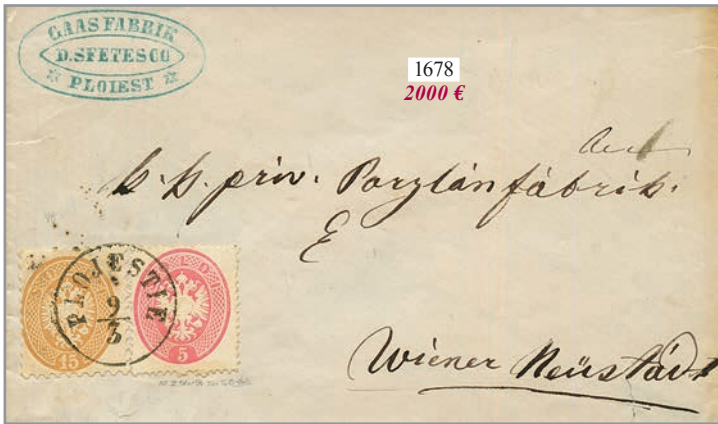 GAAS FABRIK
D. SFETESCO
PLOIEST
1678
2000 €
k. k. priv. Porzlánfábrik.
Wiener Neüstádt
PLOJESTIE
9/3
SOLDI
15
5